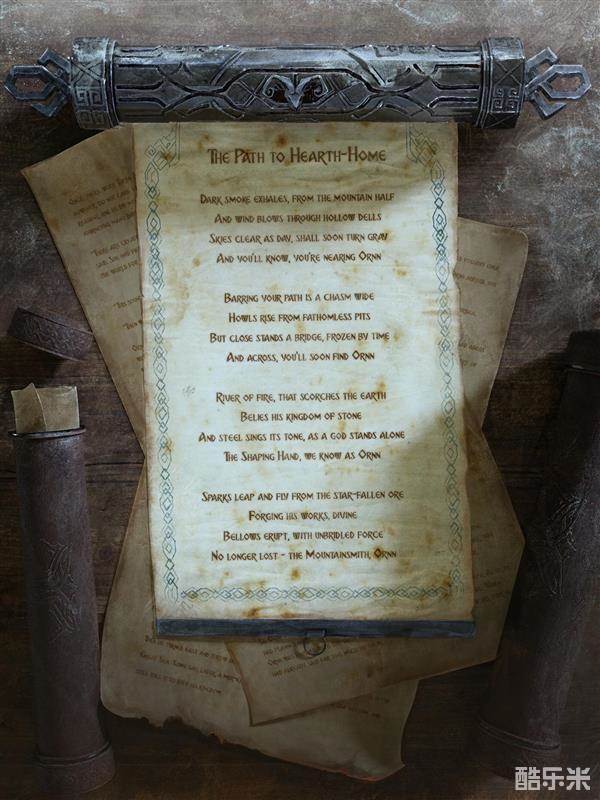 The Path to Hearth-Home
Dark smoke exhales, from the mountain half
And wind blows through hollow dells
Skies clear as day, shall soon turn gray
And you'll know, you're nearing Ornn
Barring your path is a chasm wide
Howls rise from fathomless pits
But close stands a bridge, frozen by time
And across, you'll soon find Ornn
River of fire, that scorches the earth
Belies his kingdom of stone
And steel sings its tone, as a god stands alone
The Shaping Hand, we know as Ornn
Sparks leap and fly from the star-fallen ore
Forging his works, divine
Bellows erupt, with unbridled force
No longer lost - the Mountainsmith, Ornn
酷乐米